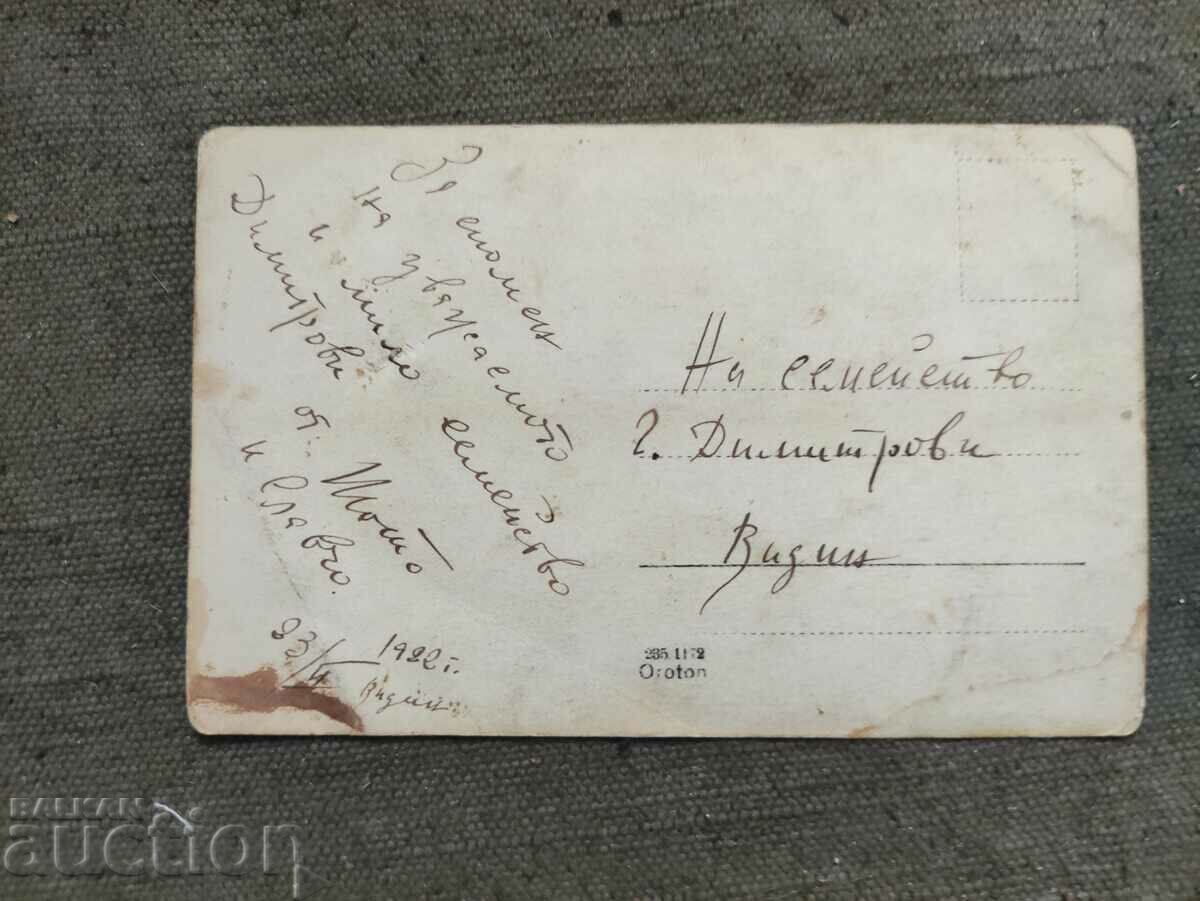 За спомен
на уважаемото
и мило семейство
Димитрови
от:
Тото
и Славчо.
23/II 1922 г.
Видин
На семейство
Г. Димитрови
Видин
Oroton
BALKAN
auction